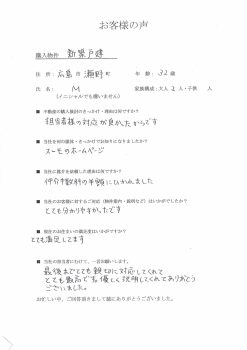 お客様の声
購入物件 新築戸建
住所：広島市瀬野町 年齢：32歳
氏名：M 家族構成：大人2人・子供 人
(イニシャルでも構いません)
■ 不動産の購入検討のきっかけ・理由は何ですか？
担当者様の対応が良かったからです
■ 当社を何の媒体・きっかけでお知りになりましたか？
スーモのホームページ
■ 当社に仲介を依頼した理由は何ですか？
仲介手数料の半額にひかれました
■ 当社のお客様に対するご対応（物件案内・説明など）はいかがでしたか？
とても分かりやすかったです
■ 現在のお住まいの満足度はいかがですか？
とても満足してます
■ 当社の担当者にむけて、一言お願いします。
最後までとても親切に対応してくれて
とても最高でも優しく説明してくれてありがとう
ございました。
お忙しい中、ご回答頂きまして誠にありがとうございました。